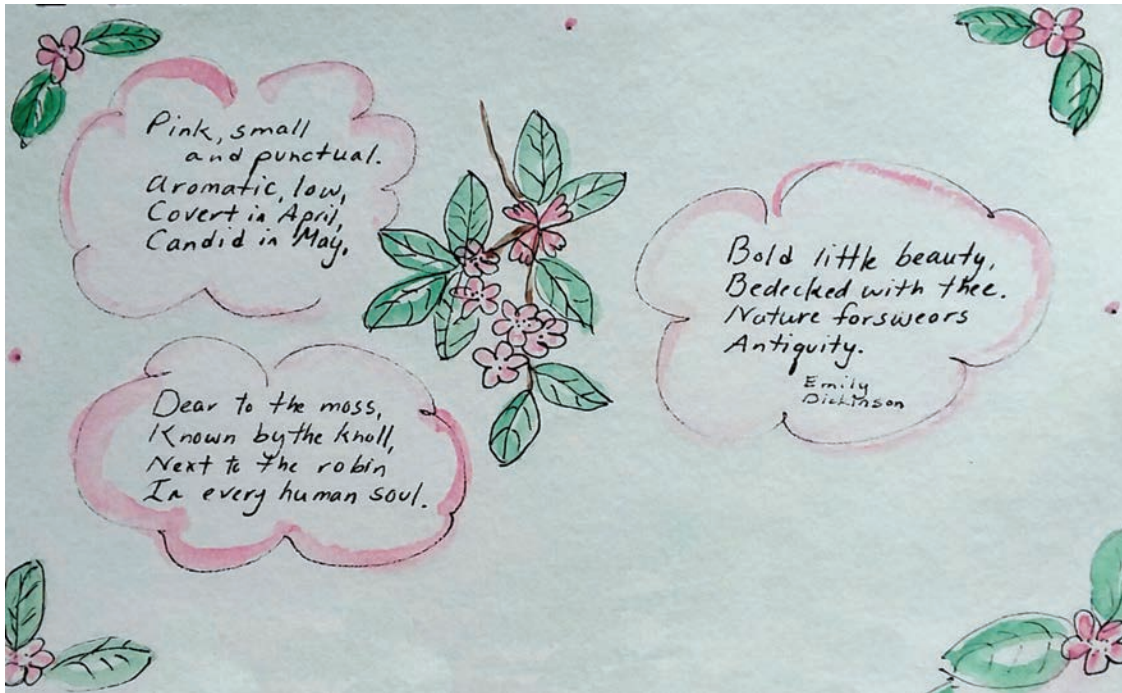 Pink, small
and punctual.
Aromatic, low,
Covert in April,
Candid in May,
Dear to the moss,
Known by the knoll,
Next to the robin
In every human soul.
Bold little beauty,
Bedecked with thee.
Nature forswears
Antiquity.
Emily
Dickinson